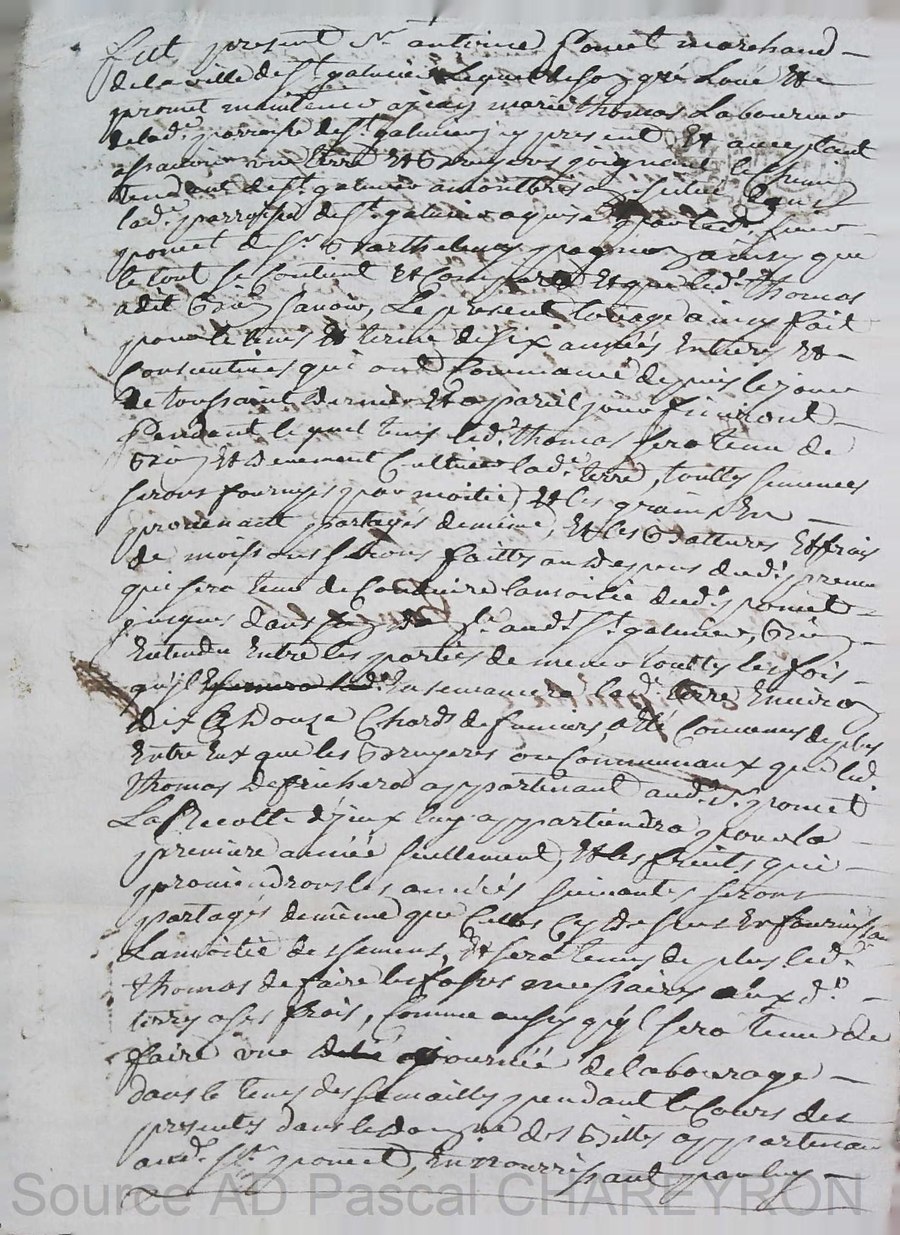 fut present Sr antoine poncet marchand
de la ville de St galmier Lequel de son gré Loüe Et
promet maintenir a jean marie thomas Laboureur
de lad. parroisse de St galmier icy present Et acceptant
assavoir une terre Et Bruyeres joignant le chemin
tendant de St galmier a montbrison située dans
lad. parroisse de St galmier aquise par led. sieur
poncet de Sr Barthelemy pagnon ainsy que
le tout Se Contient Et Comporte Et que led. thomas
a dit Bien Scavoir, Le present Loüage ainsy fait
pour le tems Et terme de Six années Entieres Et
Consecutives qui ont Commancé depuis le jour
de toussaint dernier Et a pareil jour finiront
Pendant lequel tems led. thomas sera tenu de
Bien Et duement Cultiver lad. terre, touttes semences
seront fournyes par moitié, Et les grains En
provenant partagés de même, Et les Battures Et frais
de moissons seront faittes au depens dud. preneur
que sera tenu de Conduire la moitié dud. Sr poncet
jusques dans aud. St galmier, Bien
Entendu Entre les parties de mener touttes les fois
qu'jl Ensemancera lad. terre Environ
dix a Douze Chards de fumiers a Eté Convenu de plus
Entre Eux que les Bruyeres ou Communaux que led.
thomas defrichera appartenant aud. Sr poncet
La Recolte d'jceux luy appartiendra pour la
premiere année seullement, Et les fruits qui
proviendront les années suivantes seront
partagés de même que Celles Cy dessus En fournissant
La moitié des semens, Et sera tenus de plus led.
thomas de faire les fossés necessaires aux d.
terres a ses frais, Comme aussy qu'jl sera tenu de
faire une journée de labourage
dans le tems des semailles pendant le Cours des
presentes dans le domaine des Gittes appartenant
aud. Sr poncet, En nourrissant par luy
Source AD Pascal CHAREYRON